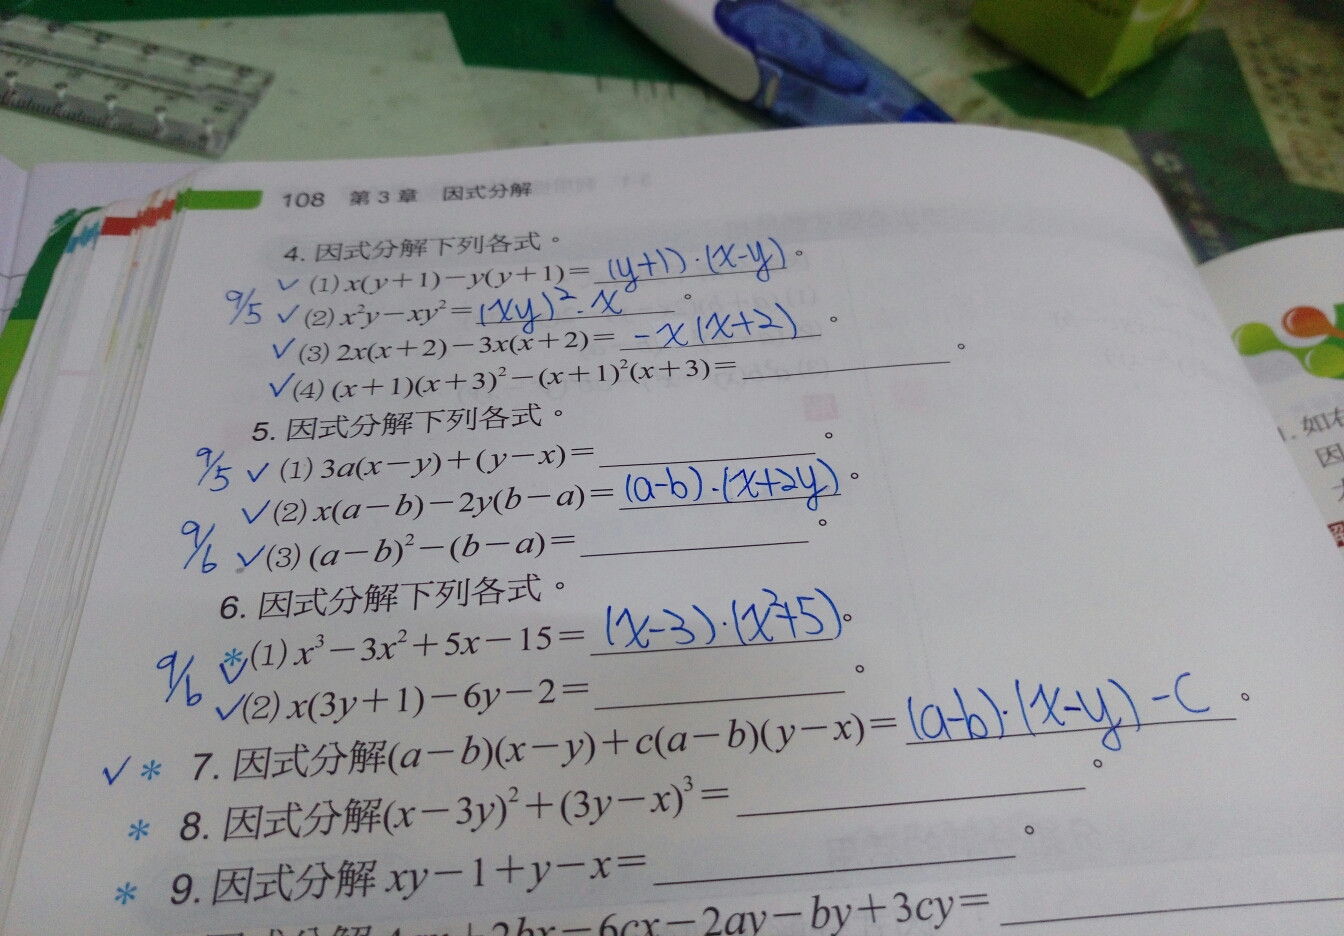 108 第3章 因式分解
4. 因式分解下列各式。
✓ (1) x(y+1)-y(y+1)= (y+1)·(x-y)。
9/5 ✓ (2) x²y-xy²= (xy)²-x。
✓ (3) 2x(x+2)-3x(x+2)= -x(x+2)。
✓ (4) (x+1)(x+3)²-(x+1)²(x+3)=。
5. 因式分解下列各式。
9/5 ✓ (1) 3a(x-y)+(y-x)=。
✓ (2) x(a-b)-2y(b-a)= (a-b)·(x+2y)。
9/6 ✓ (3) (a-b)²-(b-a)=。
6. 因式分解下列各式。
9/6 * ✓ (1) x³-3x²+5x-15= (x-3)·(x²+5)。
✓ (2) x(3y+1)-6y-2=。
✓ * 7. 因式分解(a-b)(x-y)+c(a-b)(y-x)= (a-b)·(x-y)-c。
* 8. 因式分解(x-3y)²+(3y-x)³=。
* 9. 因式分解 xy-1+y-x=。
因式分解 +2bx-6cx-2ay-by+3cy=
1. 如
因